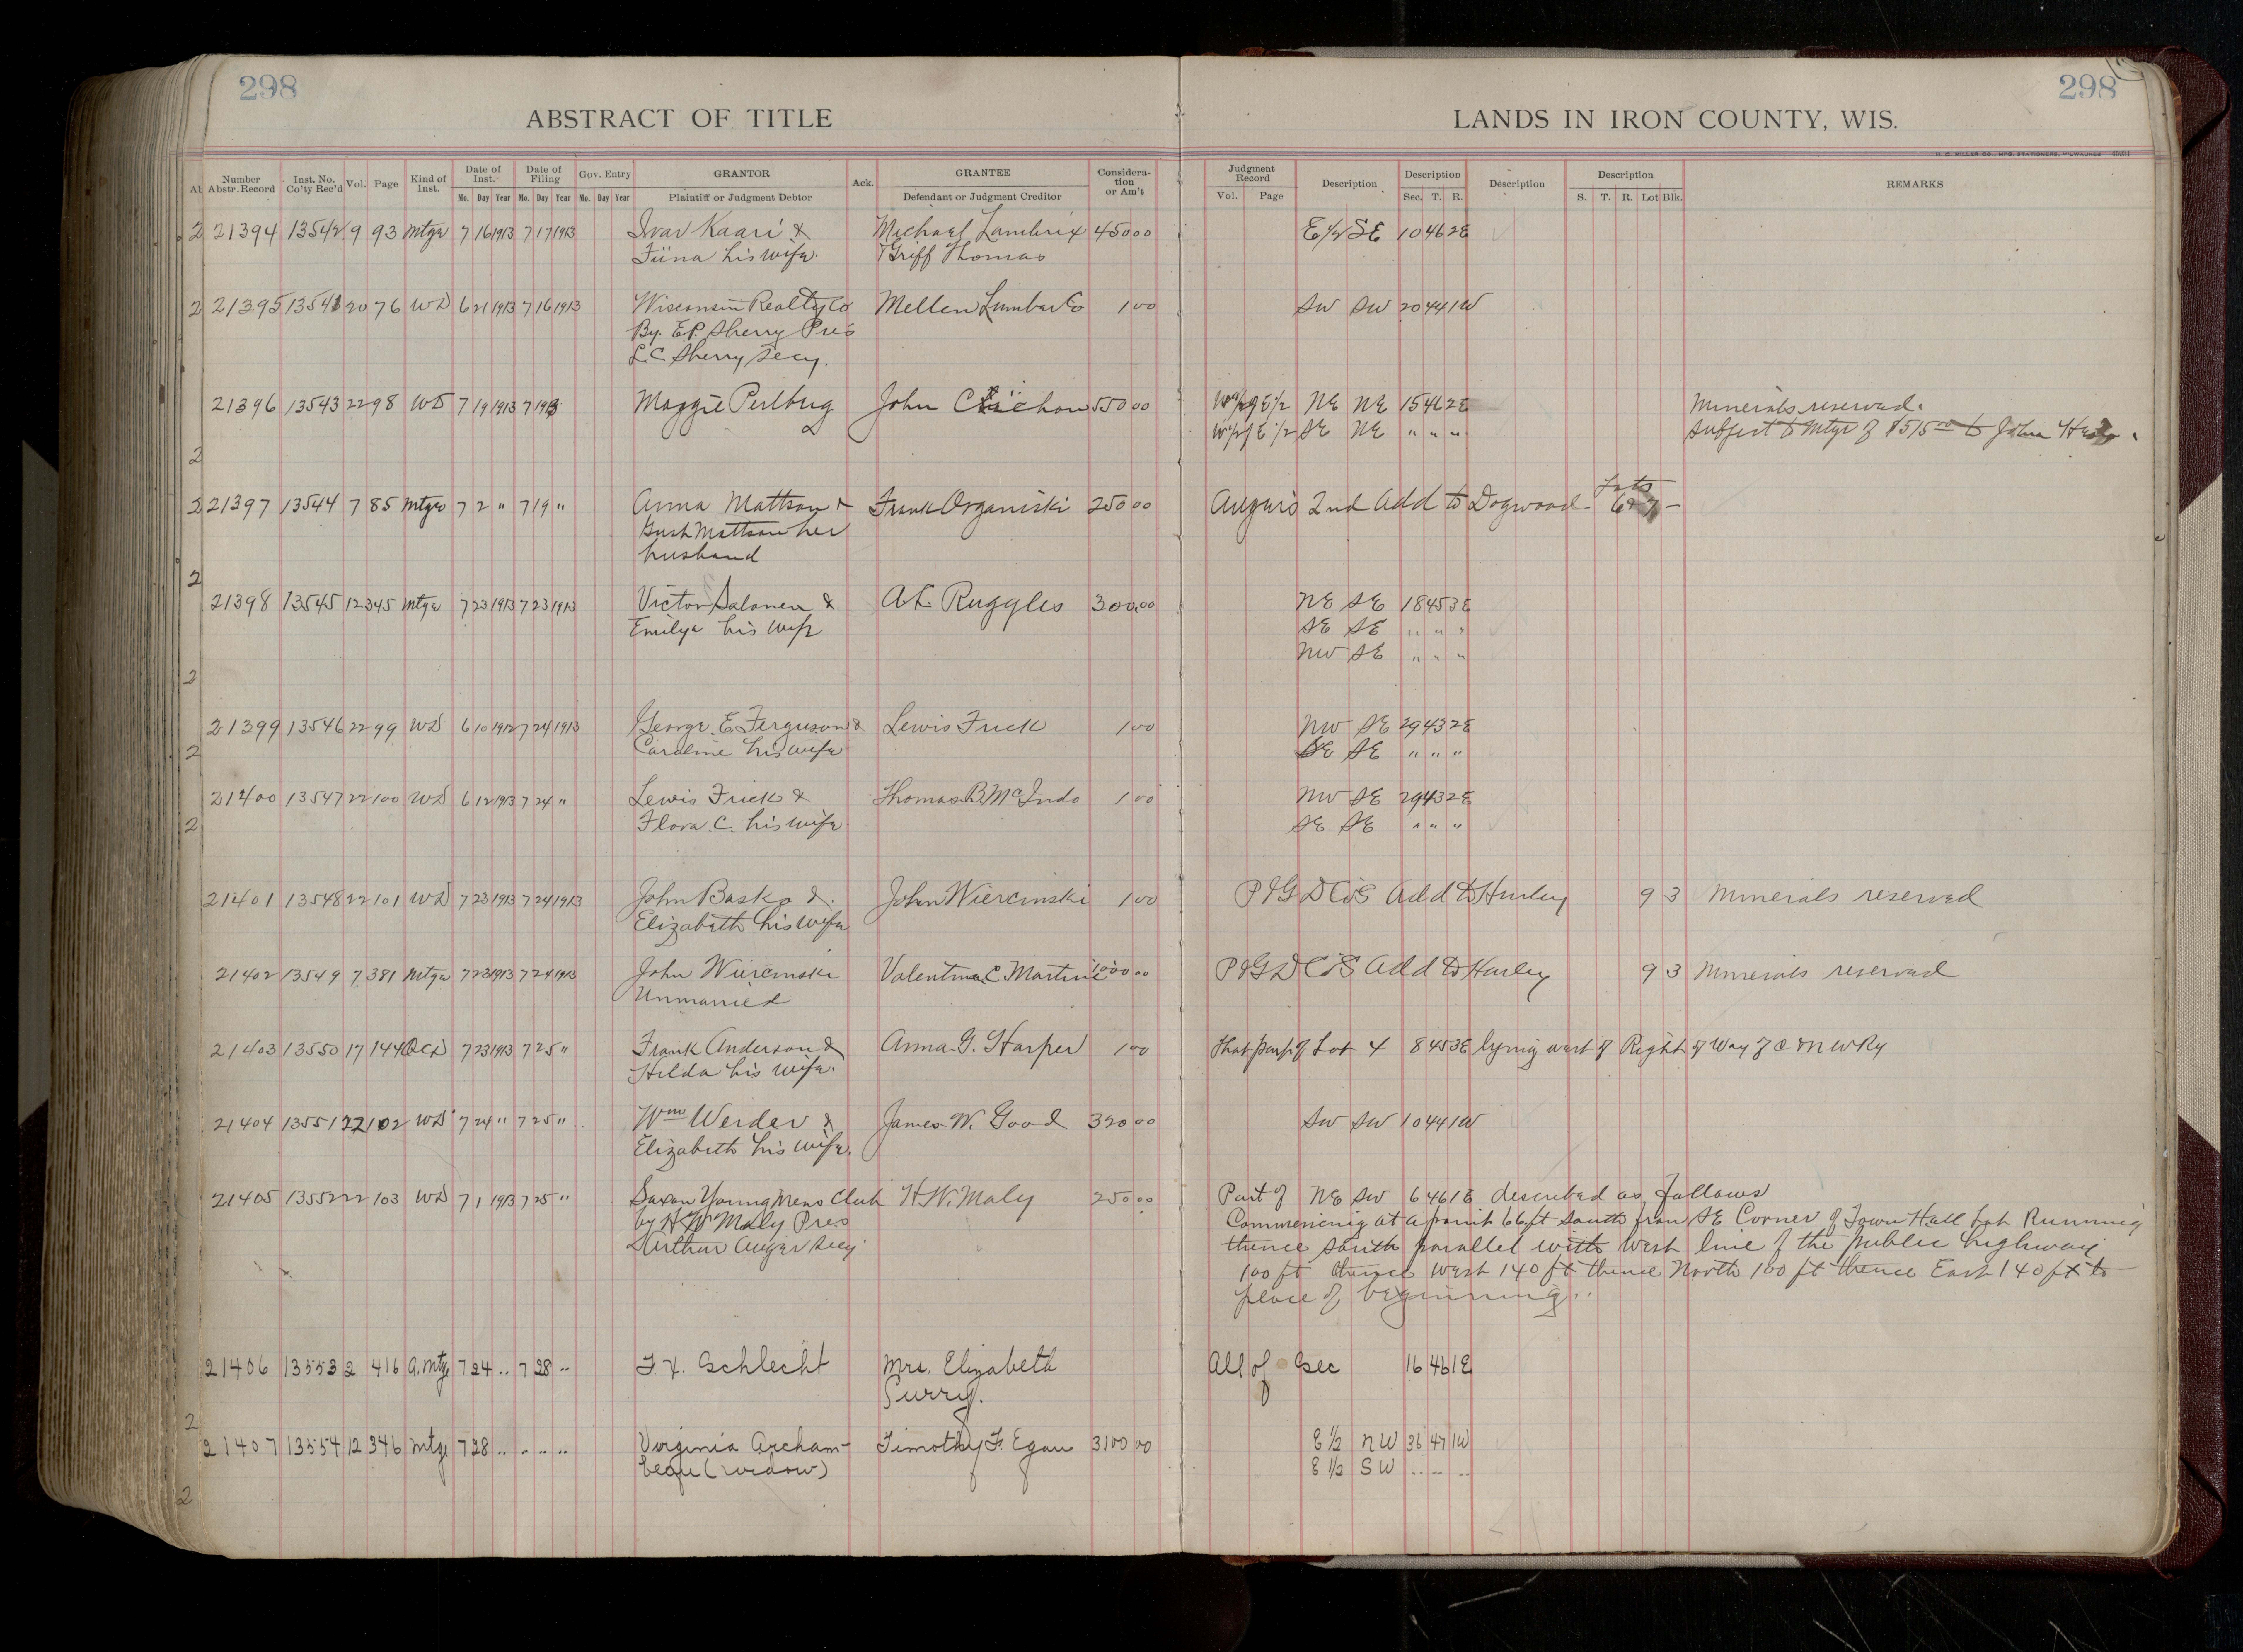 298
298
ABSTRACT OF TITLE
LANDS IN IRON COUNTY, WIS.
H. C. MILLER CO., MFG. STATIONERS, MILWAUKEE
Number Abstr. Record | Inst. No. Co'ty Rec'd | Vol. | Page | Kind of Inst. | Date of Inst. Mo. Day Year | Date of Filing Mo. Day Year | Gov. Entry Mo. Day Year | GRANTOR Plaintiff or Judgment Debtor | Ack. | GRANTEE Defendant or Judgment Creditor | Consideration or Am't | Judgment Record Vol. Page | Description | Description Sec. T. R. | Description | Description S. T. R. Lot Blk. | REMARKS
21394 13542 9 93 Mtge 7 16 1913 7 17 1913 Ivar Kaari & Michael Lambrix 450 00 E 1/2 SE 10 46 2E
Fiina his wife. & Griff Thomas
21395 13541 20 76 WD 6 21 1913 7 16 1913 Wisconsin Realty Co Mellen Lumber Co 1 00 SW SW 20 44 1W
By. E.P. Sherry Pres
L.C. Sherry Secy.
21396 13543 22 98 WD 7 19 1913 7 19 13 Maggie John 550 00 W 1/2 of E 1/2 NE NE 15 46 2E Minerals reserved.
W 1/2 of E 1/2 SE NE " " " Subject to Mtge of $515 00 to John
21397 13544 7 85 Mtge 7 2 " 7 19 " Anna Mattson & Frank Organiski 250 00 Auger's 2nd Add to Dogwood - Lots 6 & 7 -
Gust Mattson her
husband
21398 13545 12 345 Mtge 7 23 1913 7 23 1913 Victor Salonen & A.L. Ruggles 300.00 NE SE 18 45 3E
Emilya his wife SE SE " " "
NW SE " " "
21399 13546 22 99 WD 6 10 1912 7 24 1913 George. E. Ferguson & Lewis Frick 1 00 NW SE 29 43 2E
Caroline his wife SE SE " " "
21400 13547 22 100 WD 6 12 1913 7 24 " Lewis Frick & Thomas B. McIndo 1 00 NW SE 29 43 2E
Flora. C. his wife. SE SE " " "
21401 13548 22 101 WD 7 23 1913 7 24 1913 John Basko & John Wiercinski 1 00 P & G D Co's Add to Hurley 9 3 Minerals reserved
Elizabeth his wife
21402 13549 7 381 Mtge 7 23 1913 7 24 1913 John Wiercinski Valentine C. Martini 1000 00 P & G D Co's Add to Hurley 9 3 Minerals reserved
Unmarried
21403 13550 17 144 QCD 7 23 1913 7 25 " Frank Anderson & Anna. G. Harper 1 00 That part of Lot 4 8 45 3E lying west of Right of Way of C & N W Ry
Hilda his wife.
21404 13551 22 102 WD 7 24 " 7 25 " Wm Werder & James W. Good 320 00 SW SW 10 44 1W
Elizabeth his wife.
21405 13552 22 103 WD 7 1 1913 7 25 " Saxon Young Mens Club H.W. Maly 250 00 Part of NE SW 6 46 1E described as follows
by H W Maly Pres Commencing at a point 66 ft south from SE Corner of Town Hall Lot Running
& Arthur Auger Secy thence South parallel with West line of the public highway
100 ft thence West 140 ft thence North 100 ft thence East 140 ft to
place of beginning.
21406 13553 2 416 A. Mtge 7 24 .. 7 28 .. F. X. Schlecht Mrs. Elizabeth All of Sec 16 46 1E
Curry.
21407 13554 12 346 Mtge 7 28 .. .. .. .. Virginia Archam- Timothy F. Egan 3100 00 E 1/2 NW 36 47 1W
beau (widow) E 1/2 SW .. .. ..